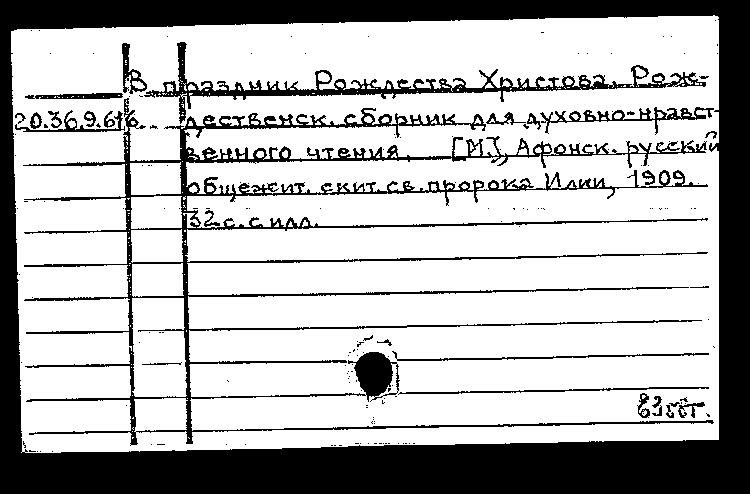 В праздник Рождества Христова. Рож-
20.36.9.616 дественск. сборник для духовно-нравст-
венного чтения. [М.], Афонск. русский
общежит. скит св. пророка Илии, 1909.
32 с. с илл.